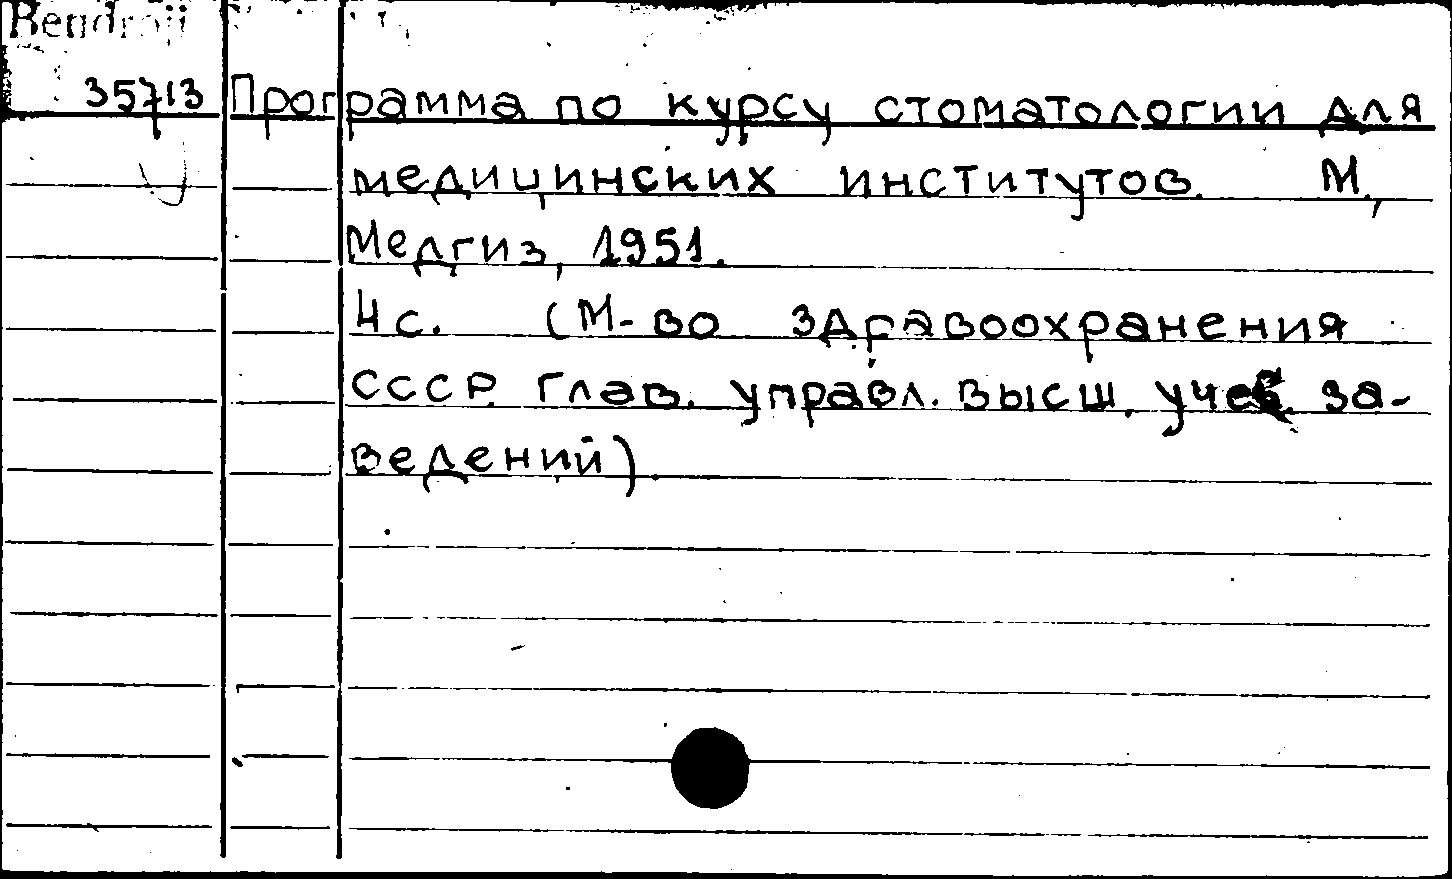 Bendroji
35713 Программа по курсу стоматологии для
медицинских институтов. М.,
Медгиз, 1951.
4 с. (М-во здравоохранения
СССР. Глав. управл. высш. учеб. за-
ведений).